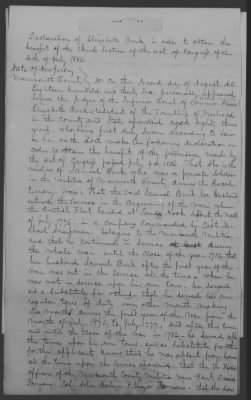 Declaration of Elizabeth Bunk in order to obtain the
benefit of the third section of the act of Congress of the
4th of July 1836
State of New Jersey
Monmouth County ss. On this second day of August AD
Eighteen hundred and thirty six personally appeared
before the Judges of the Inferior Court of Common Pleas
Elizabeth a resident of the Township of Freehold
in the County and State aforesaid aged eighty three
years, who being first duly sworn according to law
on her oath doth make the following declaration in
order to obtain the benefit of the provision made by
the act of Congress passed July 4th 1836 That she is the
widow of Samuel who was a private soldier
in the Militia of Monmouth County during the Revolu-
tionary war That the said Samuel her husband
entered the service in the beginning of the War when
the British Fleet landed at Sandy Hook about the month
of July 1776 in a company commanded by Capt
belonging to the Monmouth Militia
and that he continued in service during
the whole war until the close of the year 1782 that
her husband Samuel after the first year of the
war was out in the service all the time when he
was not in service upon his own tour, he served
as a substitute for others, that he served his own
regular tour of duty every other month making
six months during the first year of the War from the
month of July 1776 to July 1777, and after this time
and until the close of the War in 1782 he served all
the times upon his own tours, and as substitute for others
for this applicant knows that he was absent from home
all the time upon the service aforesaid, that the
officers of the Monmouth County militia were
Company, Col. John